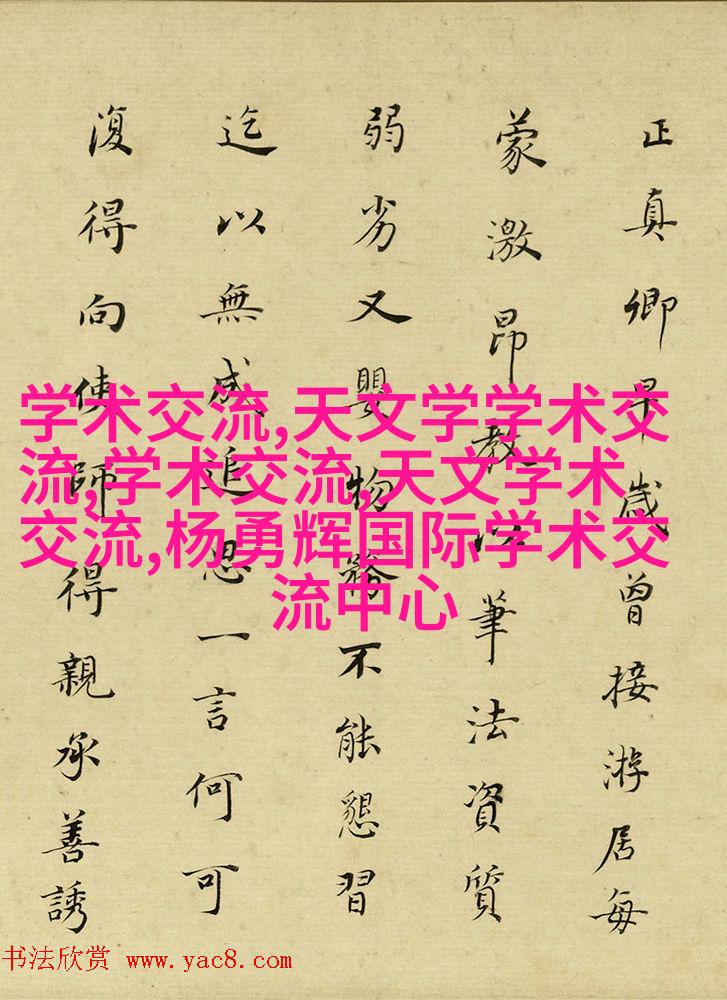 正真卿早歲曾接游居每
蒙激昂教以筆法資質
弱劣又嬰物務不能懇習
迄以無成追思一言何可
復得向使師得親承善誘
学术交流,天文学学术交
流,学术交流,天文学术
交流,杨勇辉国际学术交
流中心
书法欣赏 www.yac8.com